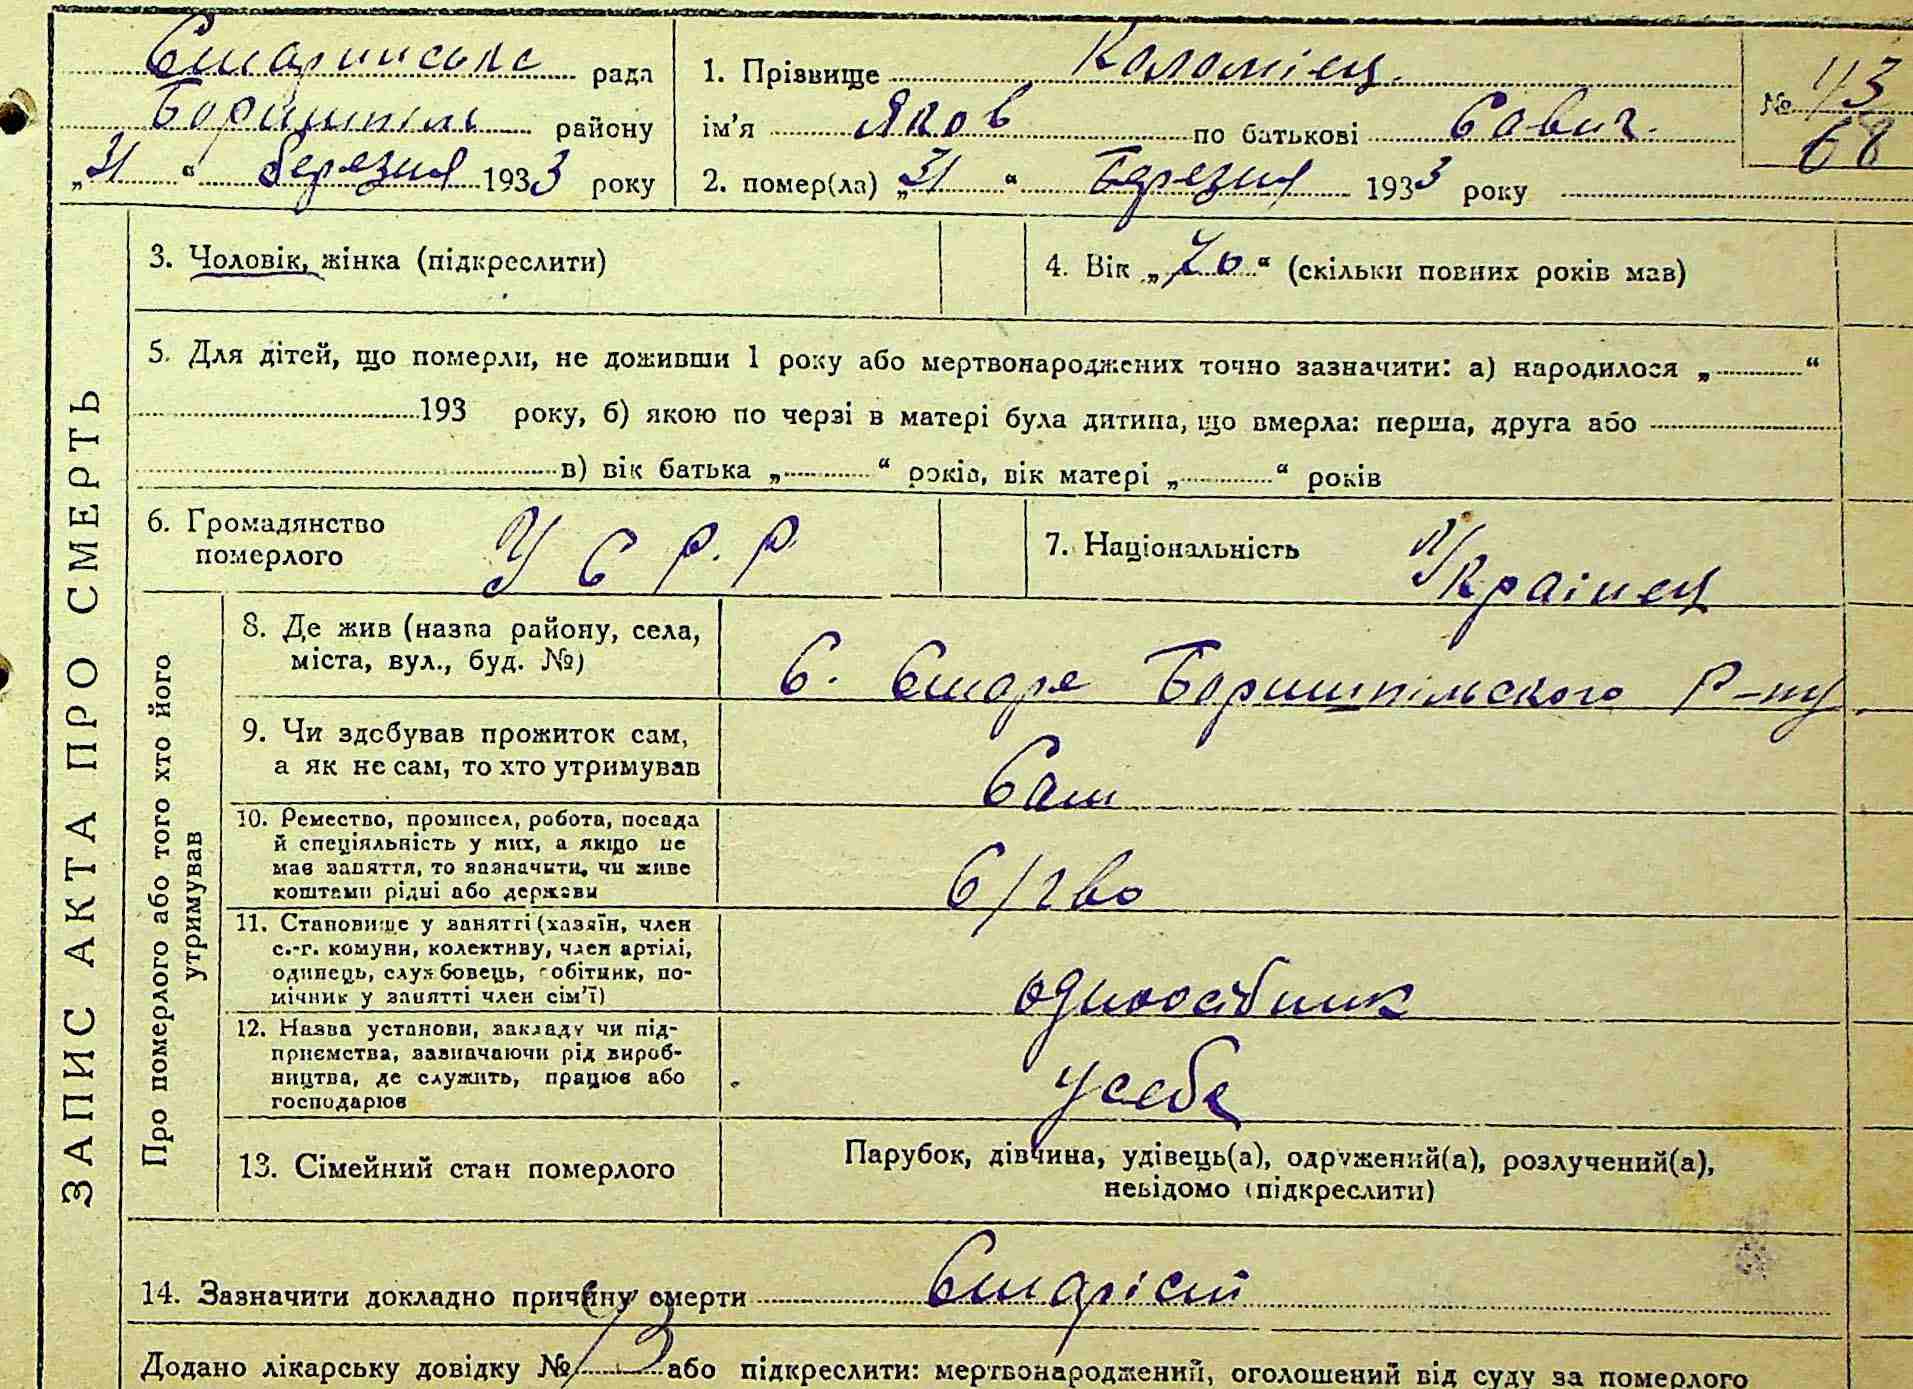 Старинська рада
Бориспіль району
„31“ березня 1933 року
1. Прізвище Коломієц.
ім’я Яков по батькові Савич.
2. помер(ла) „31“ Березня 1933 року
№ 43
68
ЗАПИС АКТА ПРО СМЕРТЬ
3. Чоловік, жінка (підкреслити)
4. Вік „70“ (скільки повних років мав)
5. Для дітей, що померли, не доживши 1 року або мертвонароджених точно зазначити: а) народилося „ “
193 року, б) якою по черзі в матері була дитина, що вмерла: перша, друга або
в) вік батька „ “ років, вік матері „ “ років
6. Громадянство
померлого
У С Р. Р.
7. Національність Украінец
Про померлого або того хто його
утримував
8. Де жив (назва району, села,
міста, вул., буд. №)
С. Старе Бориспільского Р-ну
9. Чи здобував прожиток сам,
а як не сам, то хто утримував
Сам
10. Ремество, промисел, робота, посада
й спеціяльність у них, а якщо не
мав заняття, то зазначити, чи живе
коштами рідні або держави
С/гво
11. Становище у занятті (хазяїн, член
с.-г. комуни, колективу, член артілі,
одинець, службовець, робітник, по-
мічник у занятті член сім’ї)
одноосібник
12. Назва установи, закладу чи під-
приємства, зазначаючи рід вироб-
ництва, де служить, працює або
господарює
усебе
13. Сімейний стан померлого
Парубок, дівчина, удівець(а), одружений(а), розлучений(а),
невідомо (підкреслити)
14. Зазначити докладно причину смерти Старіст
Додано лікарську довідку № або підкреслити: мертвонароджений, оголошений від суду за померлого